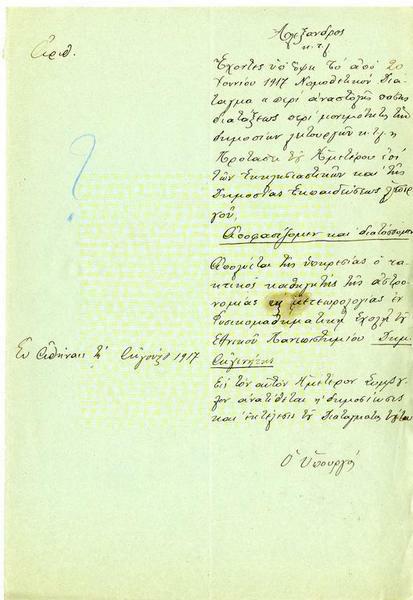 Αριθ.
Αλέξανδρος
κ.τ.λ
Έχοντες υπ' όψει το από 20
Ιουνίου 1917 Νομοθετικόν Διά-
ταγμα "περί αναστολής πάσης
διατάξεως περί μονιμότητος των
δημοσίων λειτουργών κ.τ.λ. η
Προτάσει του Ημετέρου επί
των Εκκλησιαστικών και της
Δημοσίας Εκπαιδεύσεως Υπουρ-
γού,
Αποφασίζομεν και διατάσσομεν
Απολύεται της υπηρεσίας ο τα-
κτικός καθηγητής της αστρο-
νομίας και μετεωρολογίας εν
τη Φυσικομαθηματική Σχολή του
Εθνικού Πανεπιστημίου Δημ.
Αιγινήτης
Εις τον αυτόν Ημέτερον Υπουρ-
γόν ανατίθεται η δημοσίευσις
και εκτέλεσις του Διατάγματος τούτου
Εν Αθήναις τη Αυγούστου 1917
Ο Υπουργός